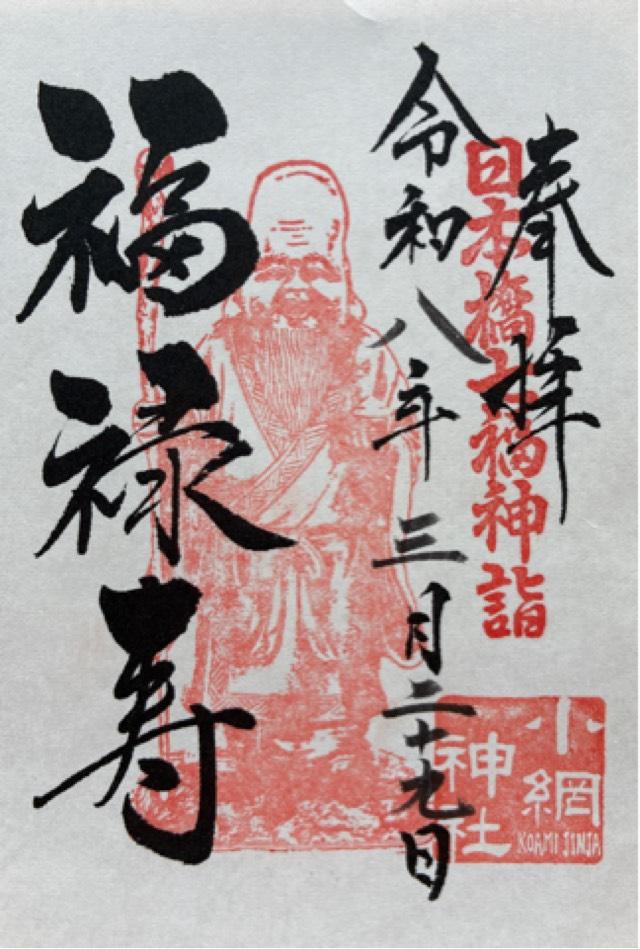 奉拝
日本橋七福神詣
令和八年三月二十九日
福禄寿
小網
神社
KOAMI JINJA